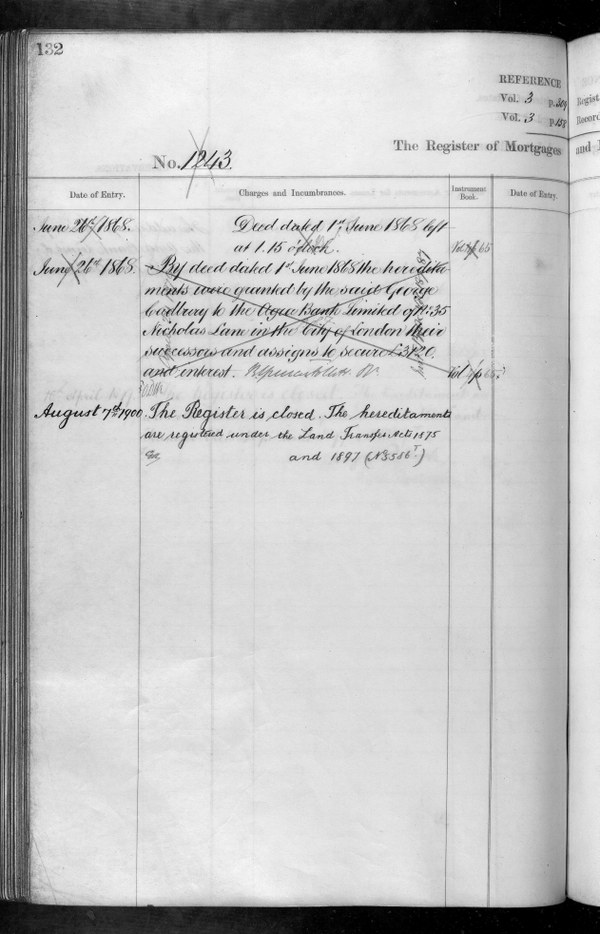 132
REFERENCE
Vol. 3 p. 309
Vol. 3 p. 153
The Register of Mortgages
No. 1243.
Date of Entry.
Charges and Incumbrances.
Instrument Book.
Date of Entry.
Regist
Record
and I
June 26th 1868.
Deed dated 1st June 1868 left
at 1.15 o'clock.
65
June 26th 1868.
By deed dated 1st June 1868 the heredita
ments were granted by the said George
to the Agra Bank Limited of No. 35
Nicholas Lane in the City of London their
successors and assigns to secure £3120.
and interest.
Vol 65
August 7th 1900
The Register is closed. The hereditaments
are registered under the Land Transfer Acts 1875
and 1897